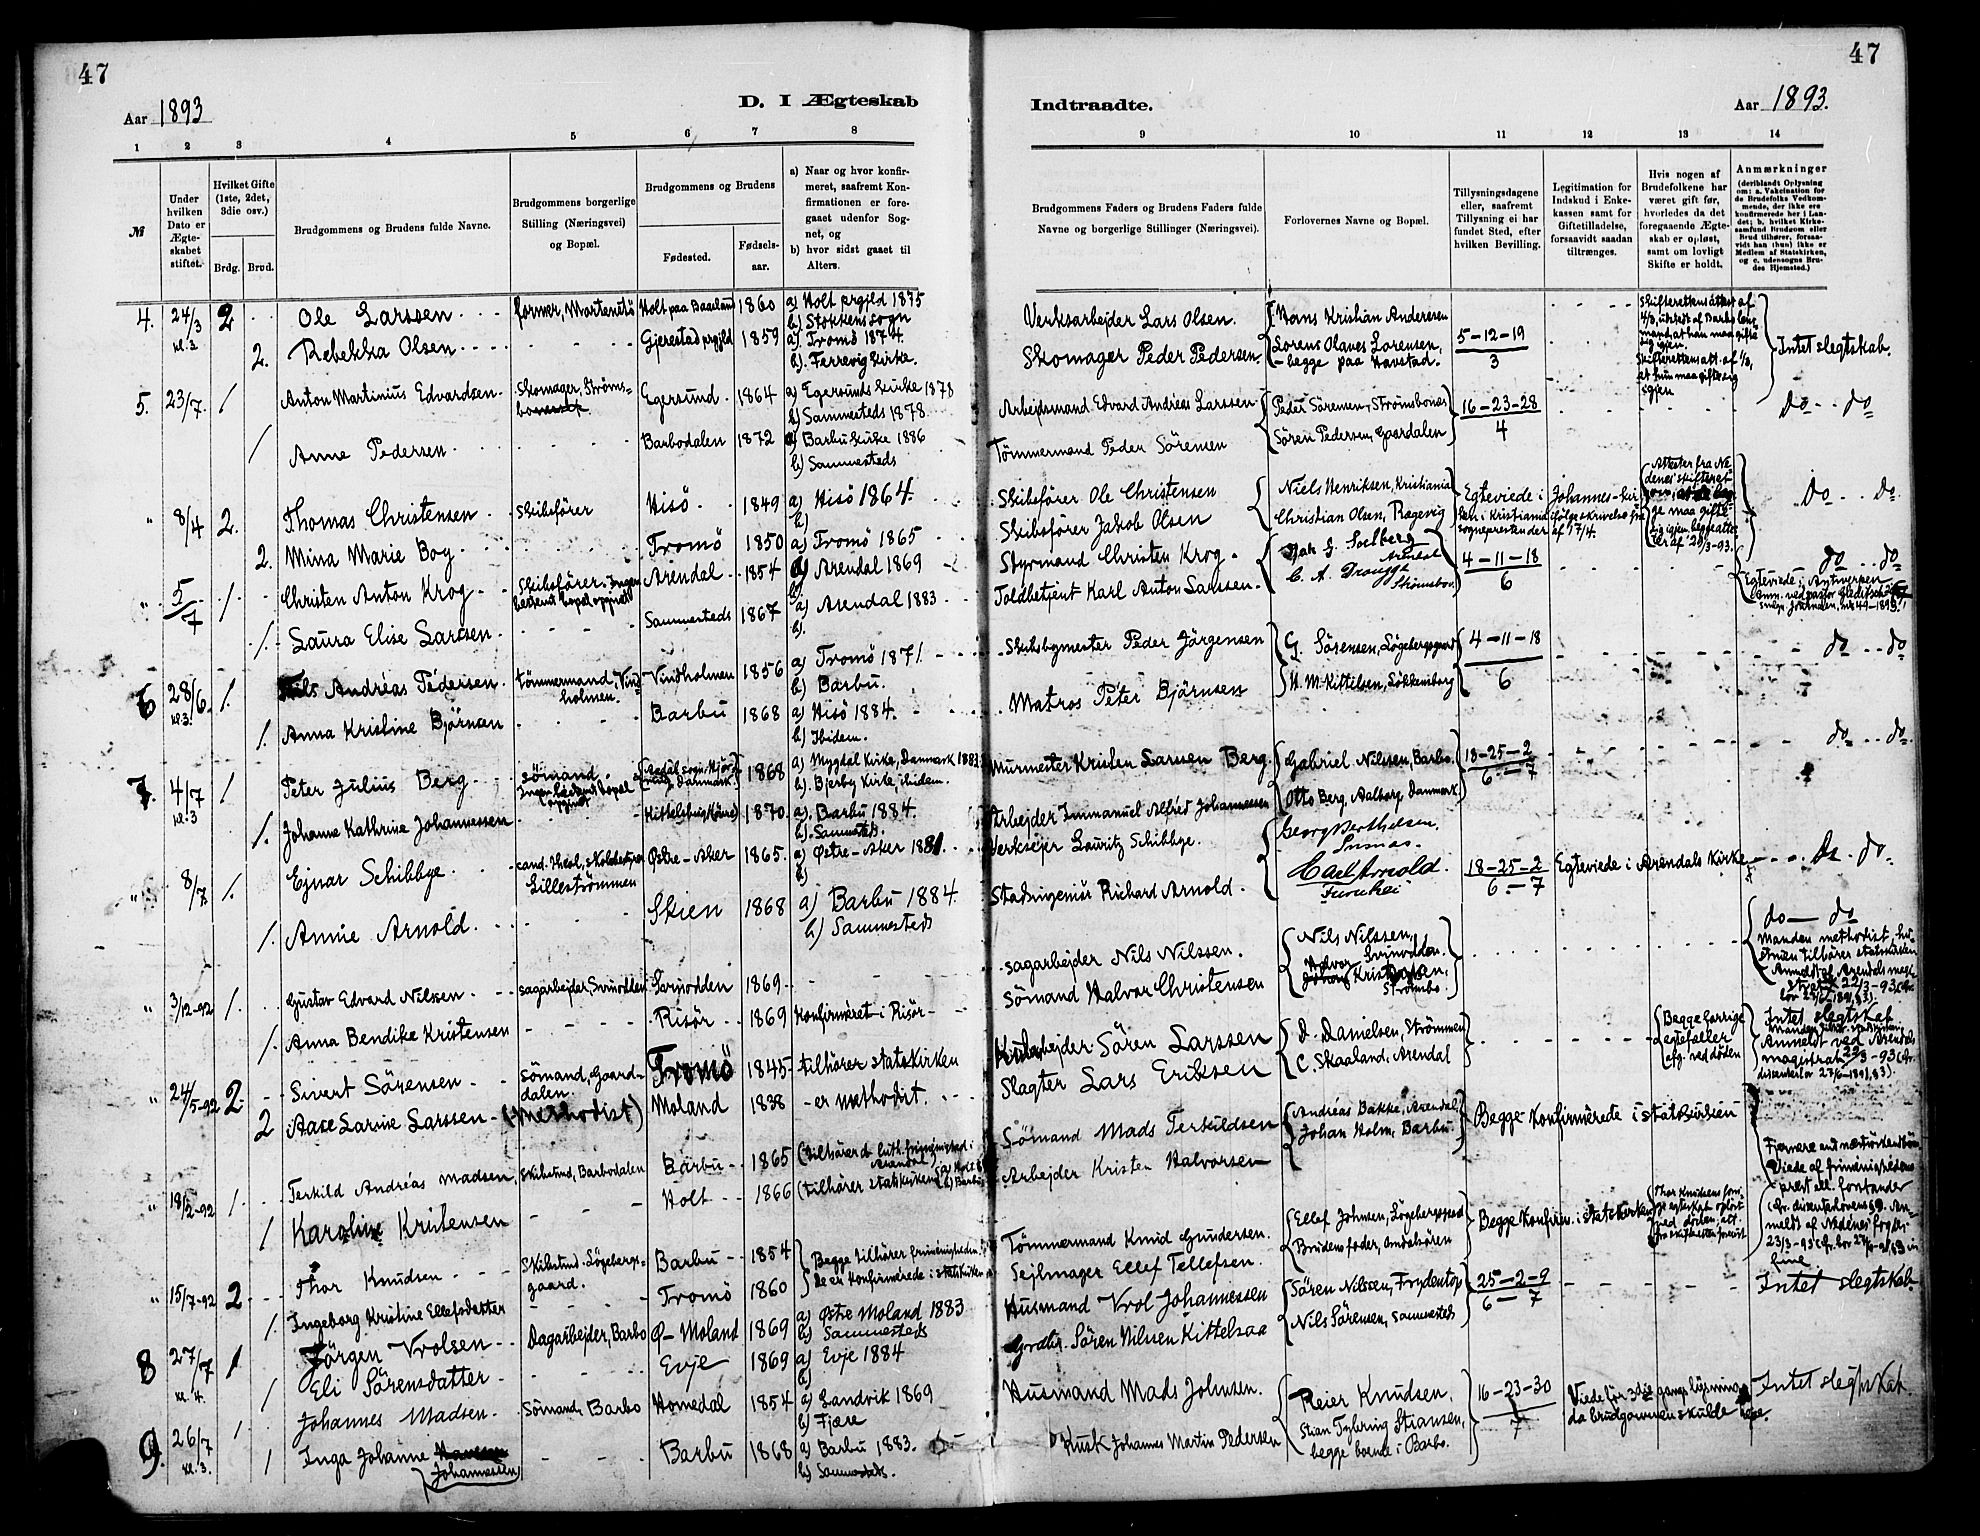 47
47
Aar 1893
D. I Ægteskab
Indtraadte.
Aar 1893.
1 2 3 4 5 6 7 8 9 10 11 12 13 14
№
Under hvilken Dato er Ægteskabet stiftet.
Hvilket Gifte (1ste, 2det, 3die osv.)
Brdg. Brud.
Brudgommens og Brudens fulde Navne.
Brudgommens borgerlige Stilling (Næringsvei) og Bopæl.
Brudgommens og Brudens
Fødested.
Fødselsaar.
a) Naar og hvor konfirmeret, saafremt Konfirmationen er foregaaet udenfor Sognet, og
b) hvor sidst gaaet til Alters.
Brudgommens Faders og Brudens Faders fulde Navne og borgerlige Stillinger (Næringsvei).
Forlovernes Navne og Bopæl.
Tillysningsdagene eller, saafremt Tillysning ei har fundet Sted, efter hvilken Bevilling.
Legitimation for Indskud i Enkekassen samt for Giftetilladelse, forsaavidt saadan tiltrænges.
Hvis nogen af Brudefolkene har været gift før, hvorledes da det foregaaende Ægteskab er opløst, samt om lovligt Skifte er holdt.
Anmærkninger
(deriblandt Oplysning om: a. Vakcination for de Brudefolks Vedkommende, der ikke ere konfirmerede her i Landet; b. hvilket Kirkesamfund Brudgom eller Brud tilhører, forsaavidt han (hun) ikke er Medlem af Statskirken, og c. udensogns Brudes Hjemsted.)
4. 24/3 kl. 3 2 Ole Larssen former, Holt paa 1860 a) Holt prgjld 1875 b) Stokkens sogn Verksarbejder Lars Olsen. Hans Kristian Andersen 5-12-19/3
2. Rebekka Olsen Gjerestad prgjld 1859 a) Tromö 1874. b) Færevig kirke. Skomager Peder Pedersen Lorens Olaves Lorensen, begge paa Havstad. Intet slegtskab.
5. 23/7. 1 Anton Martinius Edvardsen Skomager, Ströms- Egersund 1864 a) Egersunds kirke 1878 b) Sammesteds 1878 Arbejdsmand Edvard Andreas Larssen Peder Sörensen, Strömsbonæs 16-23-28/4 do do
1 Anne Pedersen Barbodalen 1872 a) Barbu kirke 1886 b) Sammesteds Tömmermand Peder Sörensen Sören Pedersen, Gaardalen
" 8/4 2. Thomas Christensen Skibsförer Hisö 1849 a) Hisö 1864. b) Skibsförer Ole Christensen Niels Henriksen, Kristiania Egteviede i Johannes-kirken i Kristiania ifölge skrivelse fra sognepresten der af 17/4. do do
2. Mina Marie Boy Tromö 1850 a) Tromö 1865 Skibsförer Jakob Olsen Christian Olsen, Ragevig
" 5/7 1. Christen Anton Krog Skibsförer. Ingen bestemt bopel opgivet Arendal 1854 a) Arendal 1869 b) Styrmand Christen Krog. Solberg Arendal 4-11-18/6 do do
1. Laura Elise Larssen Sammesteds 1867 a) Arendal 1883 b). Toldbetjent Karl Anton Larssen C. A. Strömsbo. Egteviede i Antwerpen
6 28/6. kl. 3. 1. Nils Andréas Pedersen tömmermand, Vindholmen. Vindholmen 1856 a) Tromö 1871. b) Barbu. Skibsbygmester Peder Jörgensen G. Sörensen, Lögebergsgaard 4-11-18/6 do do
1. Anna Kristine Björnsen Barbu 1868 a) Hisö 1884. b) Ibidem. Matros Peter Björnsen N. M. Kittelsen, Lökkensborg
7. 4/7 kl. 3 1 Peter Julius Berg sömand. Ingen bestemt bopel opgivet 1868 a) Mygdal Kirke, Danmark 1883 b). Bjerby Kirke, ibidem. Murmester Kristen Larsen Berg Gabriel Nilssen, Barbo. 18-25-2/6-7 do do.
1. Johanne Kathrine Johannessen Kittelsbugt 1870 a). Barbu 1884. b). Sammesteds. Arbejder Immanuel Alfred Johannessen Otto Berg, Aalborg, Danmark
" 8/7. 1. Ejnar Schibbye. cand. theol., skolebestyrer Lilleströmmen Østre-Aker 1865. a) Østre-Aker 1881. b) Verksejer Lauritz Schibbye. Georg Berthelsen. 18-25-2/6-7 Egteviede i Arendals Kirke do do
1. Annie Arnold. Skien 1868 a) Barbu 1884. b) Sammesteds Stadsingeniør Richard Arnold. Carl Arnold. Furuhei
" 3/12-92 1. Gustav Edvard Nilsen sagarbejder, Svinodden Svinodden 1869 sagarbejder Nils Nilssen. Nils Nilssen, Svinodden. do do Manden methodist, hustruen tilhører statskirken
1. Anna Bendike Kristensen Risör 1869 Konfirmeret i Risör Sömand Halvor Christensen Halvor Kristensen, Strömsbo.
" 24/5-92 2. Sivert Sörensen Sömand, Gaarddalen. Tromö 1845 tilhører statskirken Sören Larssen D. Danielsen, Strömmen Begge forrige egtefeller afg. ved döden Intet slegtskab
2 Aase Larine Larssen (Methodist) Moland 1838 er methodist. Slagter Lars Eriksen C. Skaaland, Arendal Anmeldt ved Arendals magistrat 22/3-93
" 18/2-92 1. Terkild Andréas Madsen Skibstmd, Barbodalen Barbu 1865 (tilhører d luth. frimenighed i Arendal) Sömand Mads Terkildsen Andréas Bakke, Arendal Begge konfirmerede i statskirken
1 Karoline Kristensen Holt 1866 (tilhører statskirken) Arbejder Kristen Halvorsen Johan Holm, Barbu.
" 15/7-92 2 Thor Knudsen Skibstmd. Lögebergsgaard. Barbu 1854 Begge tilhører frimenigheden. Tömmermand Knud Gundersen. Ellef Johnsen, Lögebergsgaard Begge konfirm. i statskirken
1. Ingeborg Kristine Ellefsdatter Tromö 1860 De er konfirmerede i statskirken Sejlmager Ellef Tellefsen. Brudens fader,
8 27/7 kl. 4. 1 Jörgen Vrolsen Dagarbejder, Barbo Ø-Moland 1869 a) Østre Moland 1883 b) Sammesteds Husmand Vrol Johannessen Sören Nilssen, Frydentop 25-2-9/6-7 Intet slegtskab.
1 Eli Sörensdatter Evje 1869 a) Evje 1884 b) Sören Nilsen Kittelsaa Nils Sörensen, sammesteds
9. 26/7 kl. 3. 1. Johannes Madsen Sömand, Barbo Homedal 1854 a) Landvik 1869 b) Fjære Husmand Mads Johnsen. Reier Knudsen, 16-23-30/7 Viede för 3die gangs lysning, da brudgommen skulde rejse. Intet slegtskab
1 Inga Johanne Hansen Johannessen Barbu 1868 a) Barbu 1883. b) Sammesteds. Husk Johannes Martin Pedersen Stian Tybring Stiansen, begge boende i Barbo.